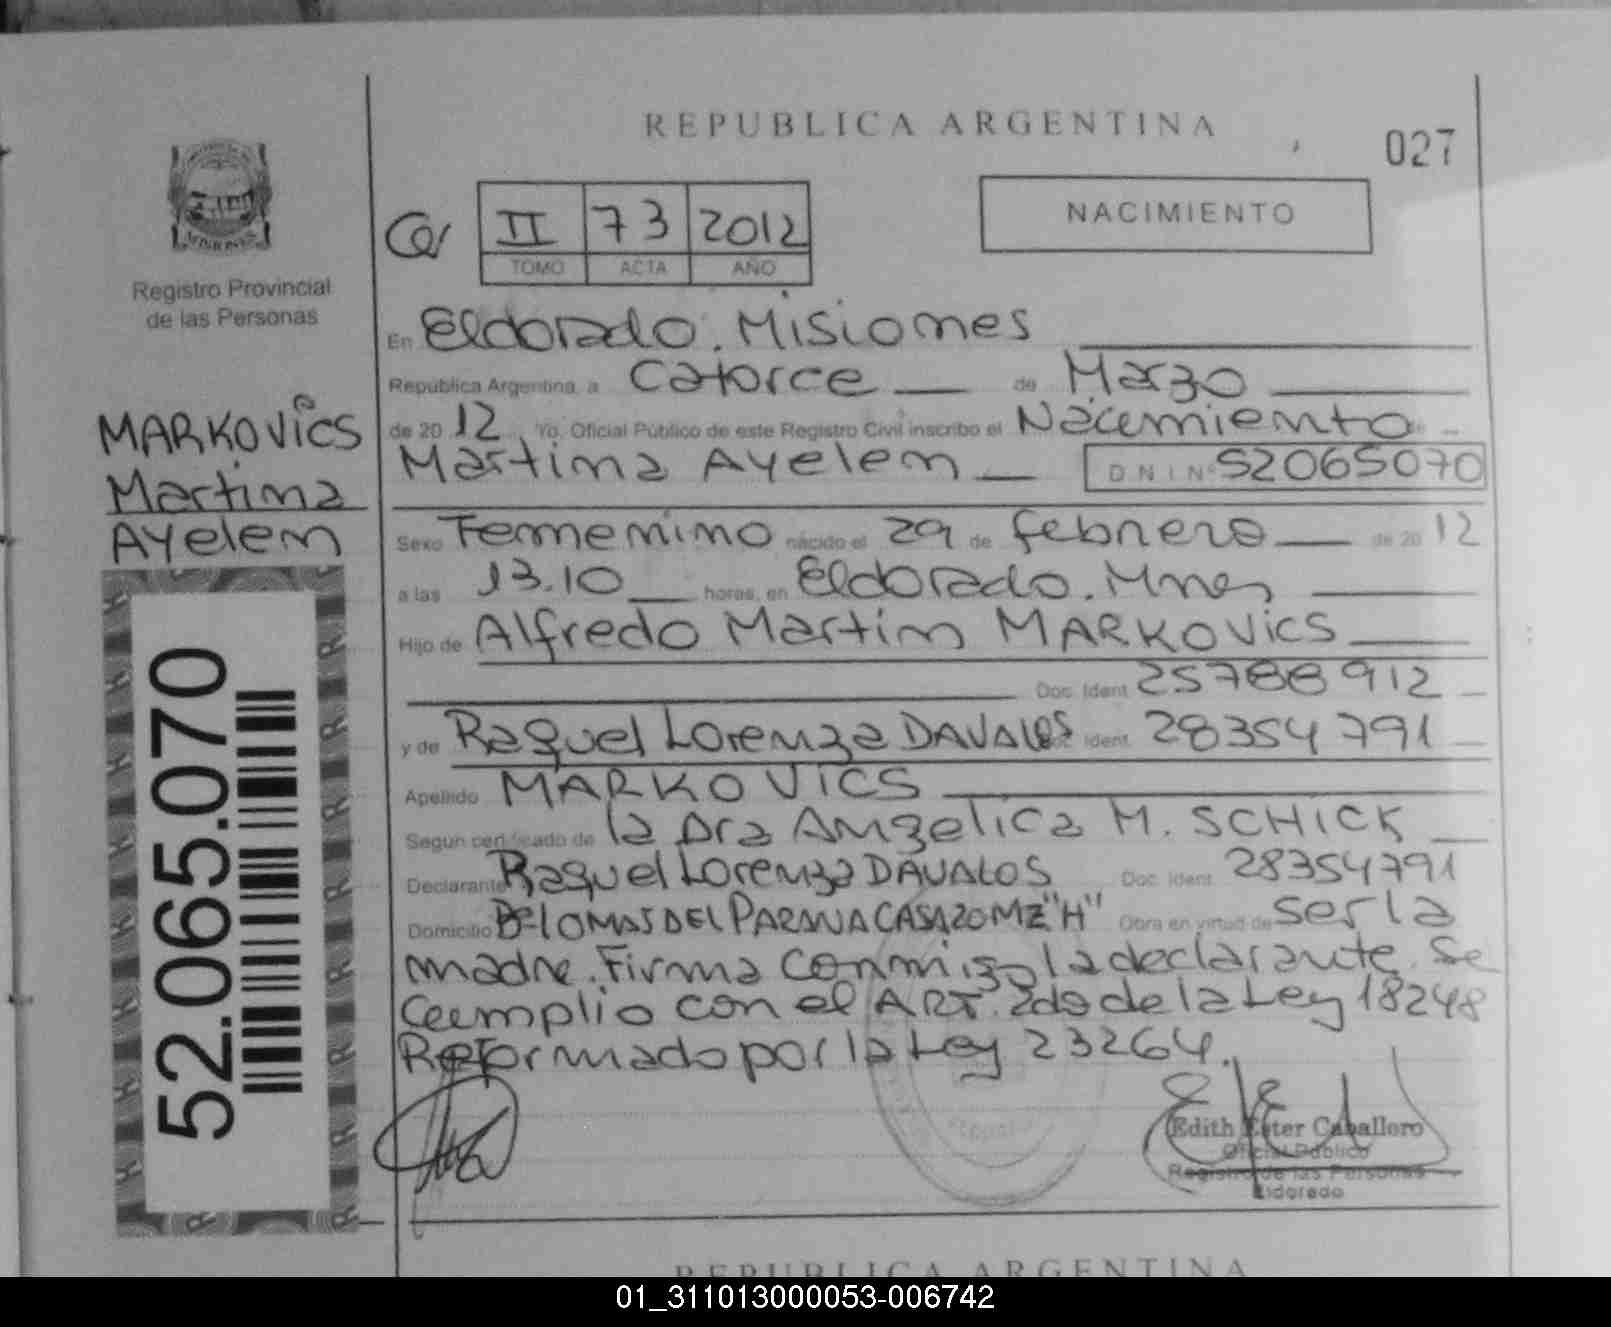 REPUBLICA ARGENTINA
027
Registro Provincial
de las Personas
II 73 2012
TOMO ACTA AÑO
NACIMIENTO
MARKOVICS
Martina
Ayelen
52.065.070
En Eldorado. Misiones
República Argentina, a Catorce de Marzo
de 20 12, Yo, Oficial Público de este Registro Civil inscribo el Nacimiento de
Martina Ayelen DNI Nº 52065070
Sexo Femenino nácido el 29 de febrero de 20 12
a las 13.10 horas, en Eldorado. Mnes
Hijo de Alfredo Martin MARKOVICS
Doc. Ident. 25788912
y de Raquel Lorenza DAVALOS Doc. Ident. 28354791
Apellido MARKOVICS
Según certificado de la Dra Angelica M. SCHICK
Declarante Raquel Lorenza DAVALOS Doc. Ident. 28354791
Domicilio Bº LOMAS DEL PARANA CASA 20 MZ "H" Obra en virtud de ser la
madre. Firma conmigo la declarante. Se
cumplio con el ART. 2do de la Ley 18248
Reformado por la Ley 23264.
Edith Ester Caballero
Oficial Público
Registro de las Personas
Eldorado
REPUBLICA ARGENTINA
01_311013000053-006742